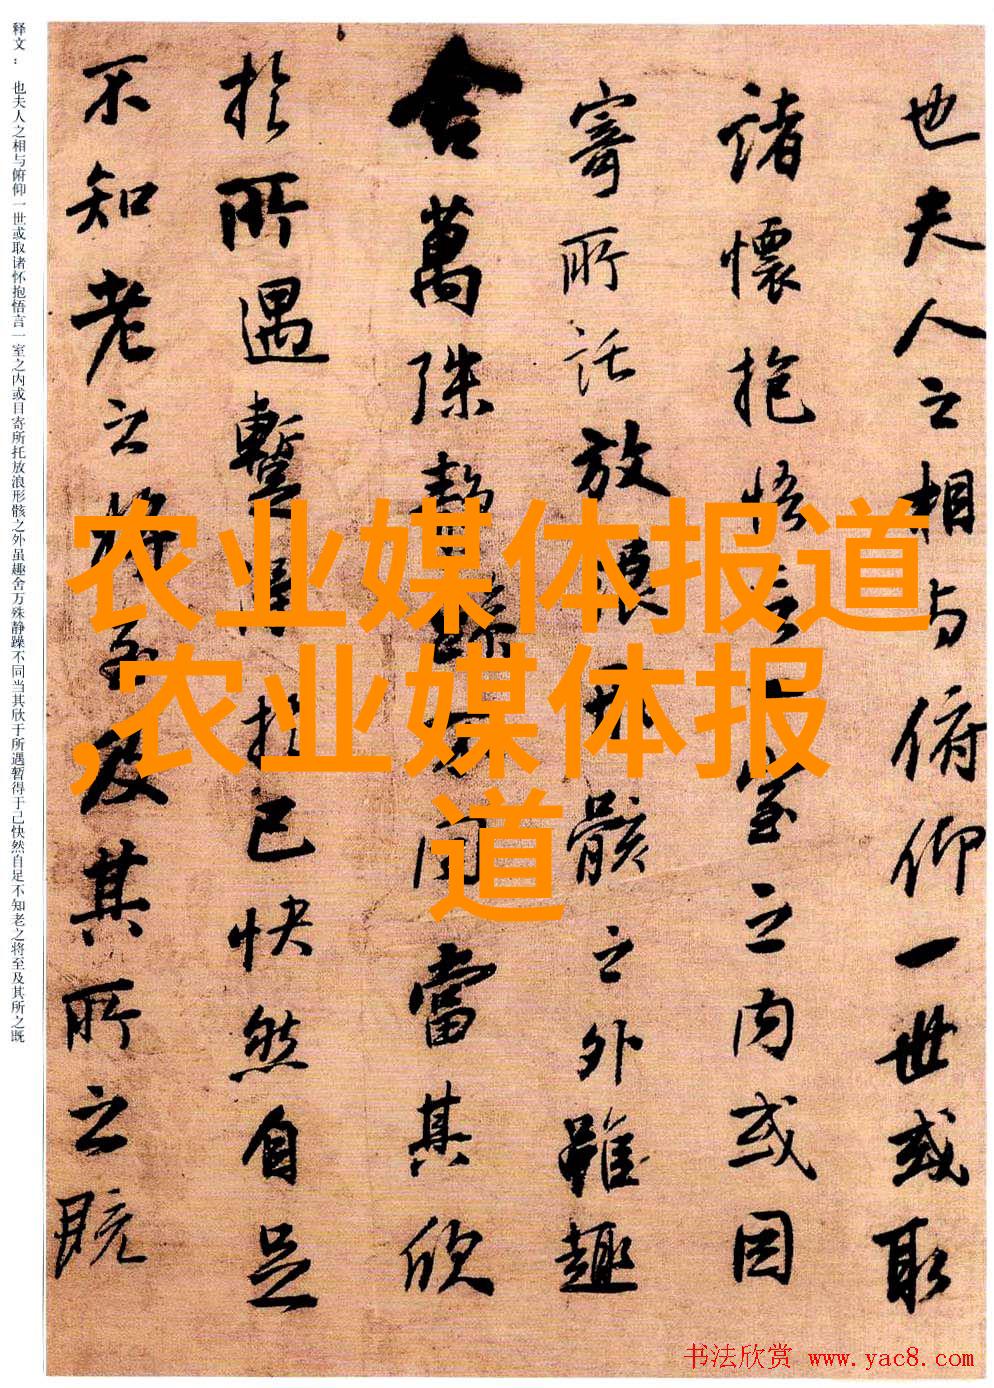 也夫人之相与俯仰一世或取
諸懷抱悟言一室之内或因
寄所託放浪形骸之外雖趣
舍萬殊静躁不同當其欣
於所遇暫得於己快然自足
不知老之将至及其所之既
释文： 也夫人之相与俯仰一世或取诸怀抱悟言一室之内或目寄所托放浪形骸之外虽趣舍万殊静躁不同当其欣于所遇暂得于己快然自足不知老之将至及其所之既
农业媒体报道
,农业媒体报
道
书法欣赏 www.yac8.com